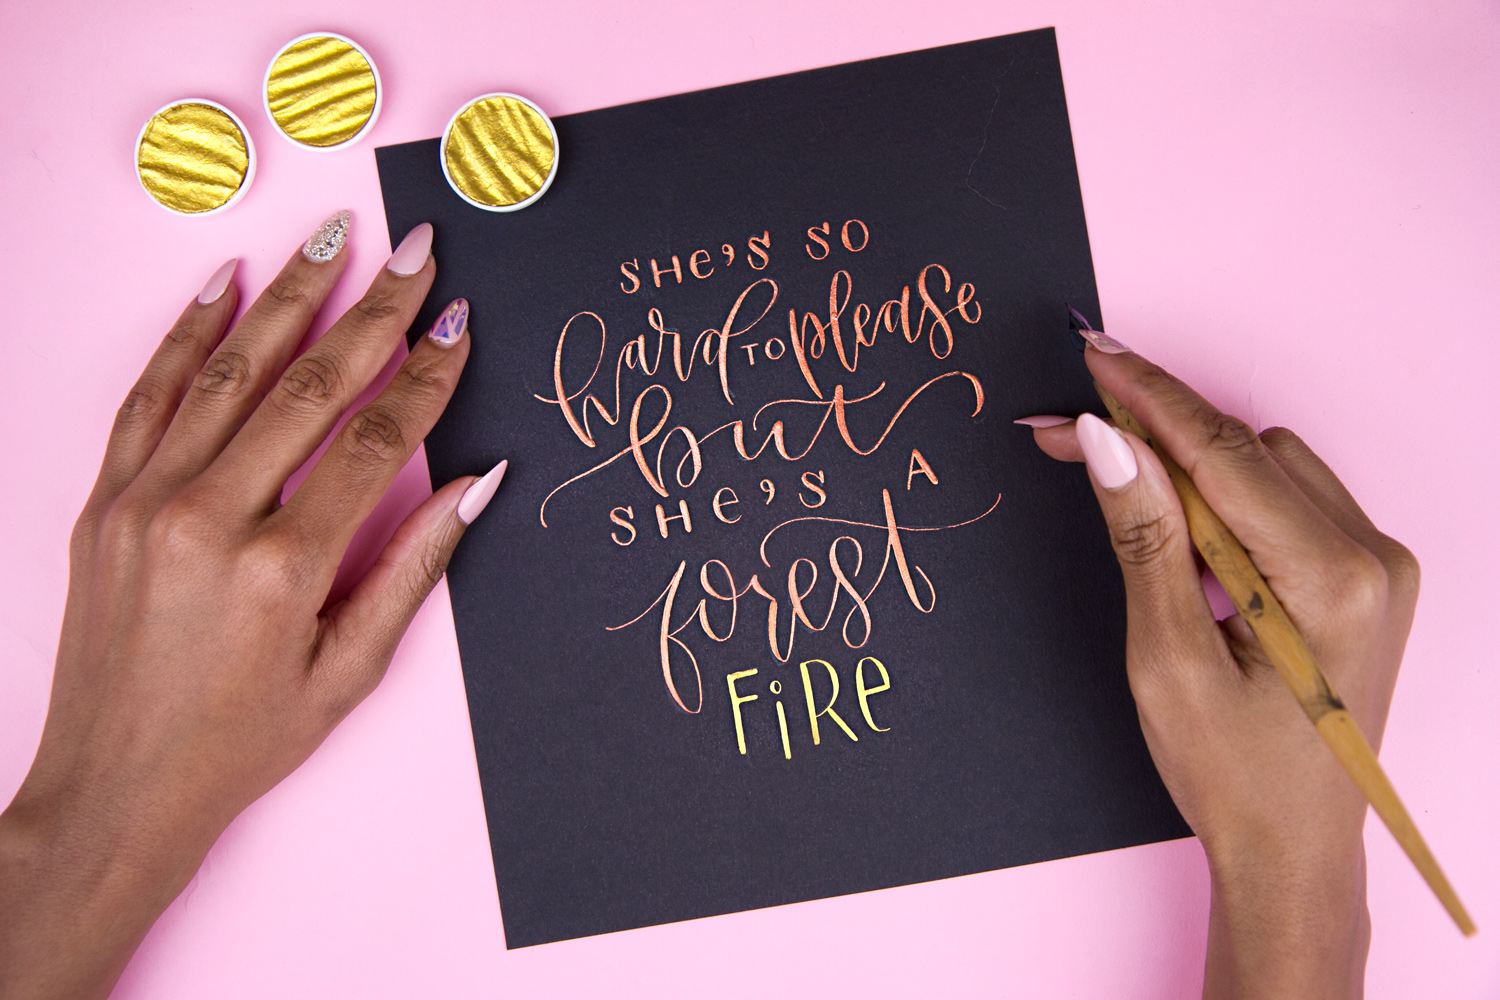 SHe'S SO
hard TO please
but
SHe'S A
forest
FiRe